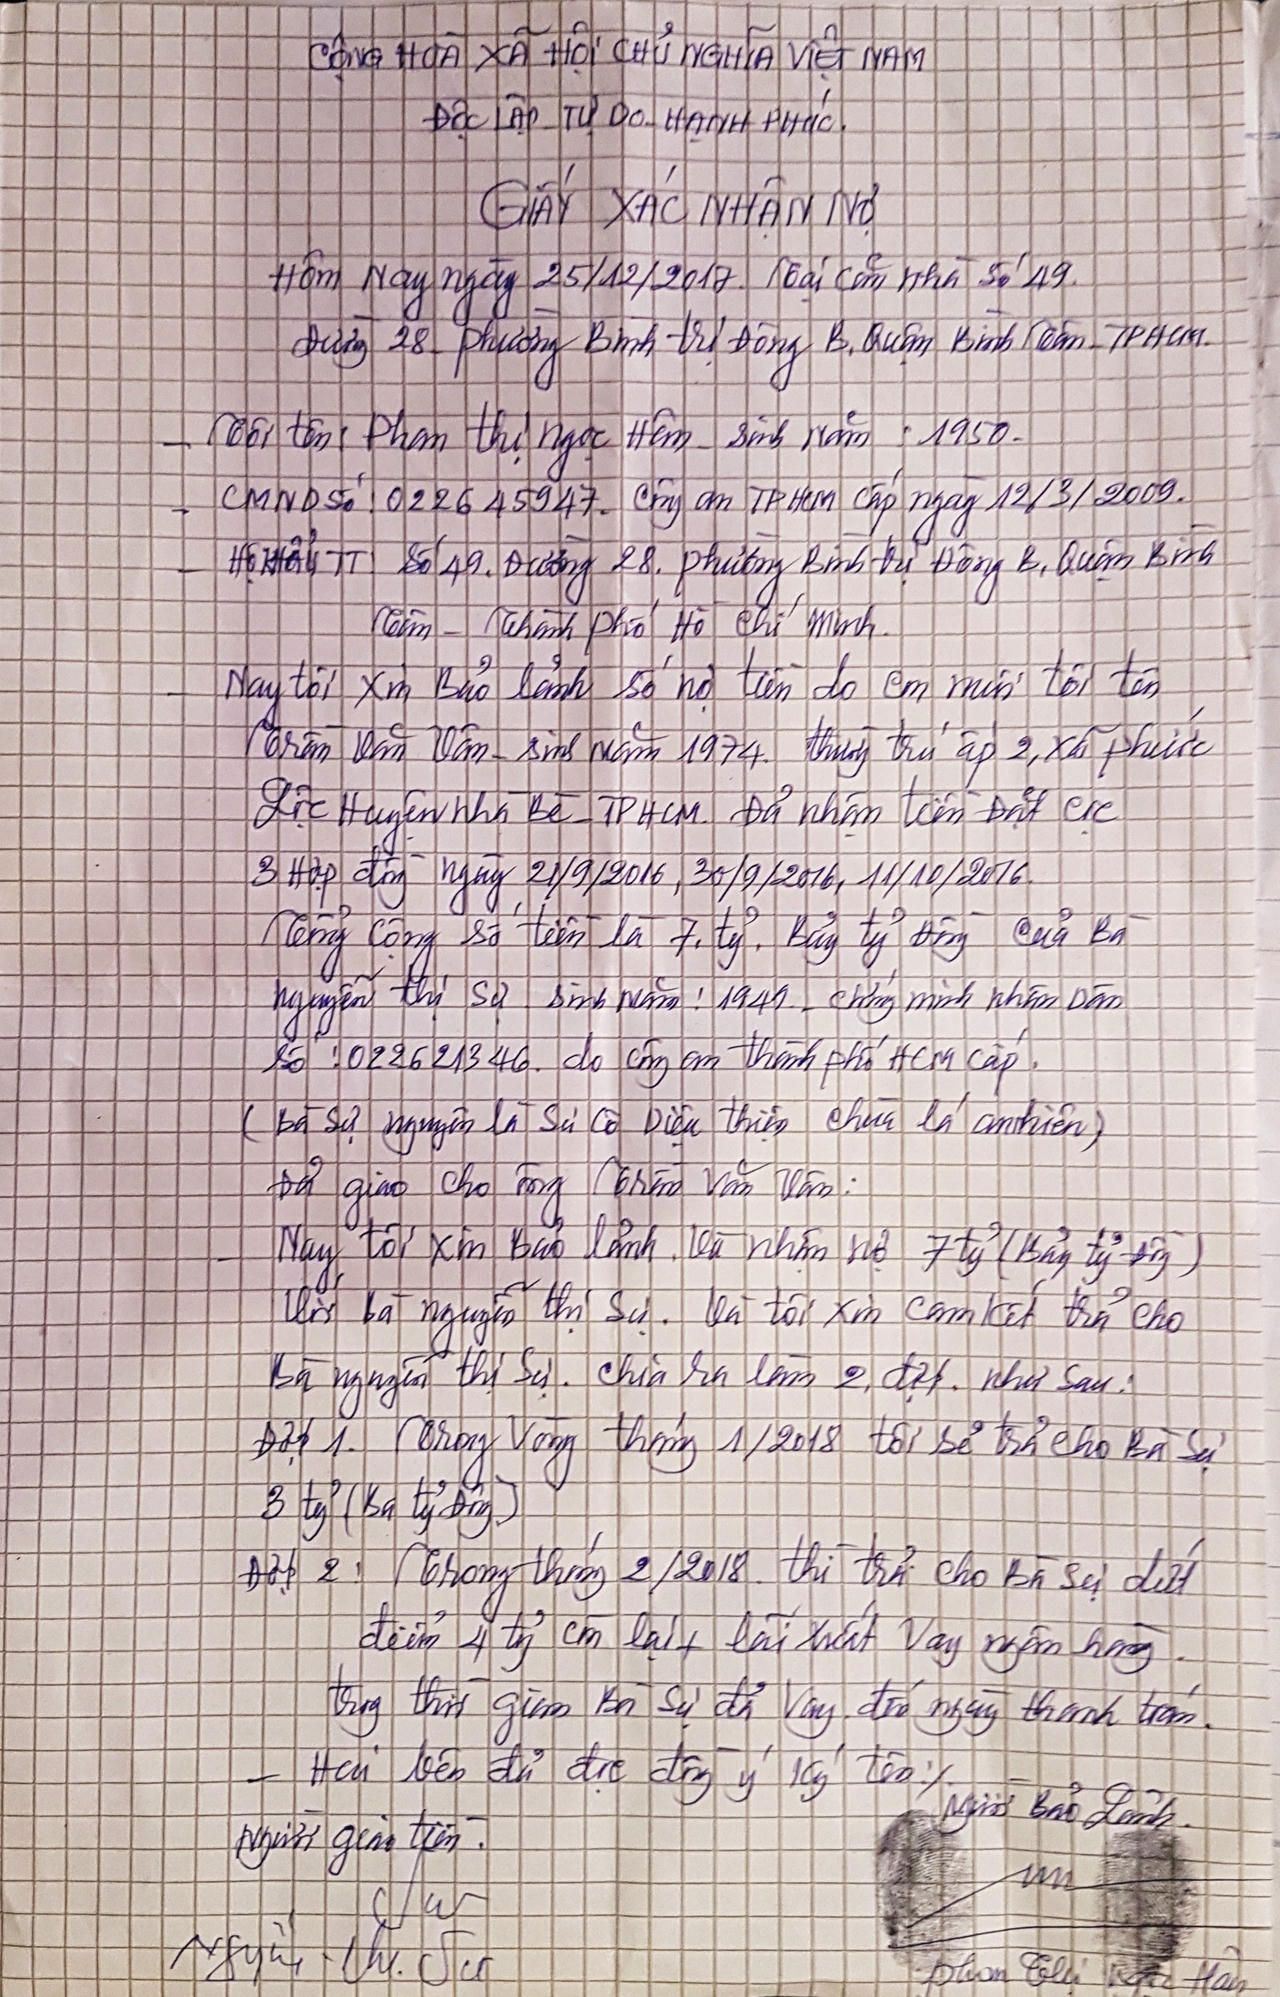 CỘNG HOÀ XÃ HỘI CHỦ NGHĨA VIỆT NAM
ĐỘC LẬP - TỰ DO - HẠNH PHÚC.
GIẤY XÁC NHẬN NỢ
Hôm Nay ngày 25/12/2017. Tại căn nhà số 49.
Đường 28 - phường Bình trị Đông B, Quận Bình Tân - TPHCM.
- Tôi tên: Phan thị ngọc Hân - sinh năm : 1950 -
- CMND Số : 022645947. Công an TPHCM cấp ngày 12/3/2009.
- Hộ khẩu TT: Số 49. Đường 28. phường Bình trị Đông B, Quận Bình
Tân - Thành phố Hồ chí minh.
- Nay tôi xin Bảo lảnh số nợ tiền do em tôi tên
Trần Văn Vân - sinh năm 1974. trú ấp 2, xã phước
Lộc Huyện nhà Bè - TPHCM. Đả nhận tiền Đặt cọc
3 Hợp đồng ngày 21/9/2016, 30/9/2016, 11/10/2016.
Tổng cộng số tiền là 7. tỷ. Bảy tỷ đồng của Bà
nguyễn thị sự sinh năm : 1949 - chứng minh nhân Dân
số : 022621346. do công an thành phố HCM cấp.
( Bà Sự nguyên là Sư cô Diệu thiện chùa lá an nhiên)
Đả giao cho ông Trần Văn Vân:
- Nay tôi xin Bảo lảnh. Và nhận nợ 7 tỷ (Bảy tỷ đồng)
Với bà nguyễn thị Sự. Và tôi xin cam kết trả cho
Bà nguyễn thị Sự. chia ra làm 2, đợt. như sau:
Đợt 1. Trong vòng tháng 1/2018 tôi sẻ trả cho Bà Sự
3 tỷ (Ba tỷ đồng)
Đợt 2: Trong tháng 2/2018. thì trả cho Bà Sự dứt
điểm 4 tỷ còn lại + lãi xuất vay ngân hàng.
trong thời gian Bà Sự đả vay. đến ngày thanh toán.
- Hai bên đả đọc đồng ý ký tên ./.
Người Bảo Lảnh.
Người giao tiền.
Nguyễn Thị Sự
Phan Thị Ngọc Hân